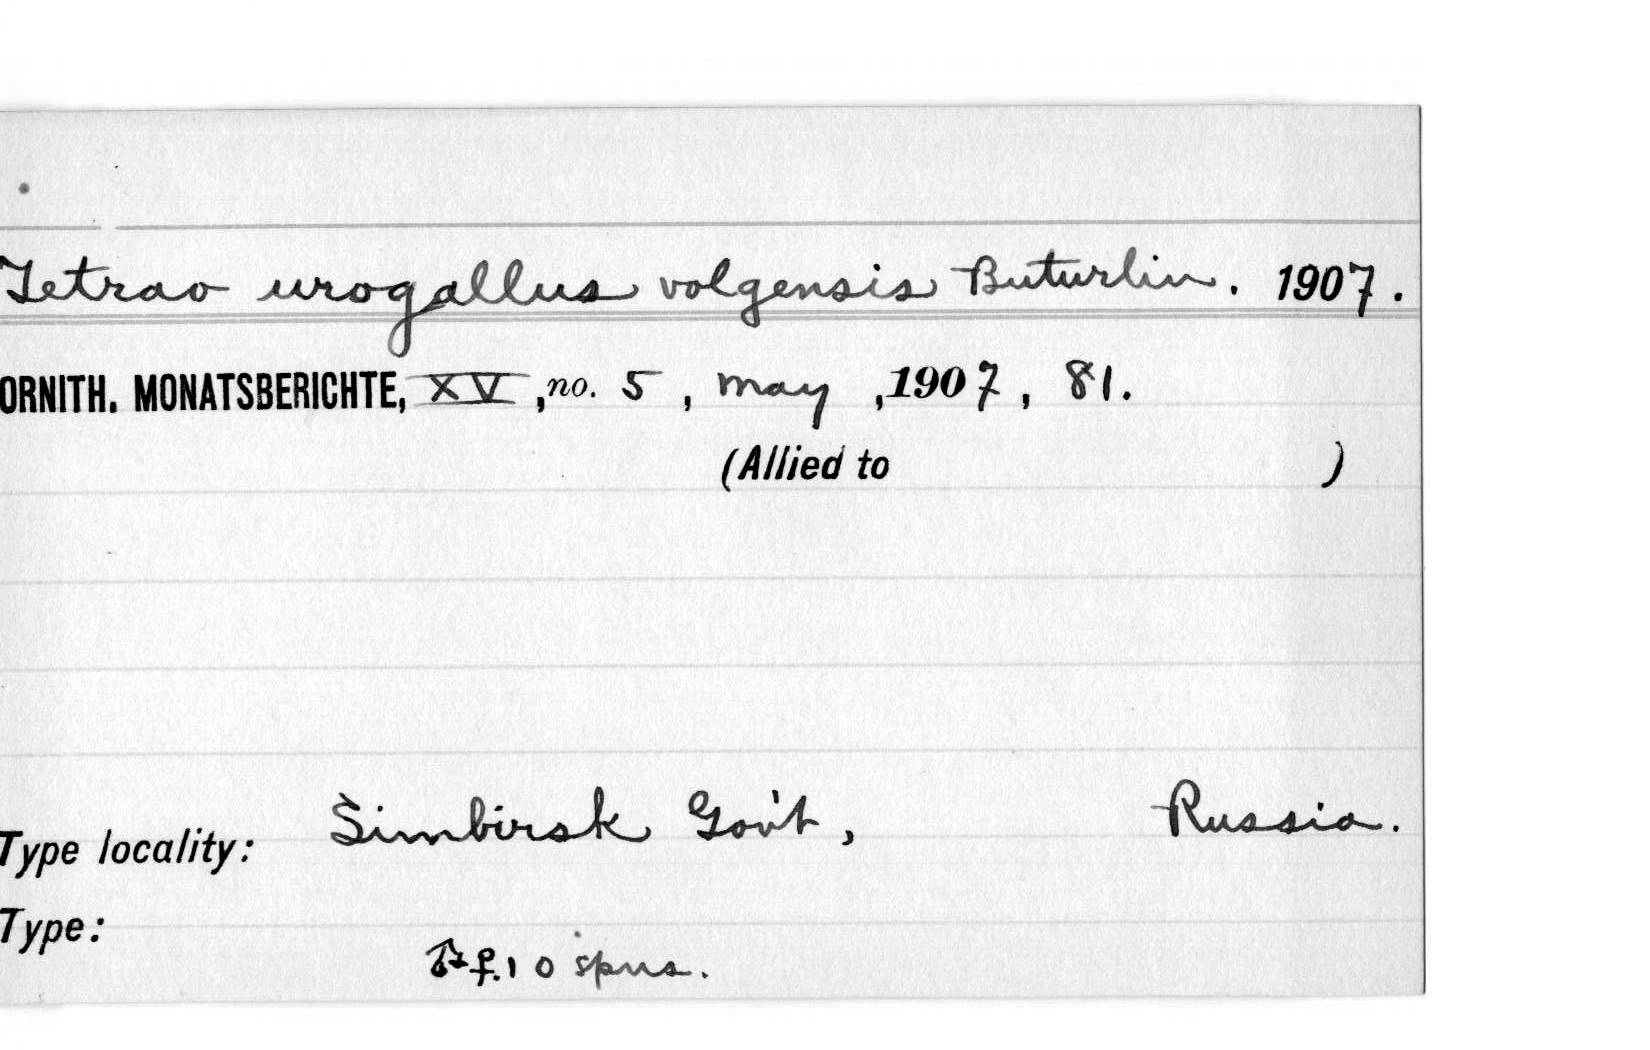 Tetrao urogallus volgensis Buturlin. 1907.
ORNITH. MONATSBERICHTE, XV, no. 5, May, 1907, 81.
(Allied to )
Type locality: Simbirsk Gov't, Russia.
Type:
♂♀. 10 spns.